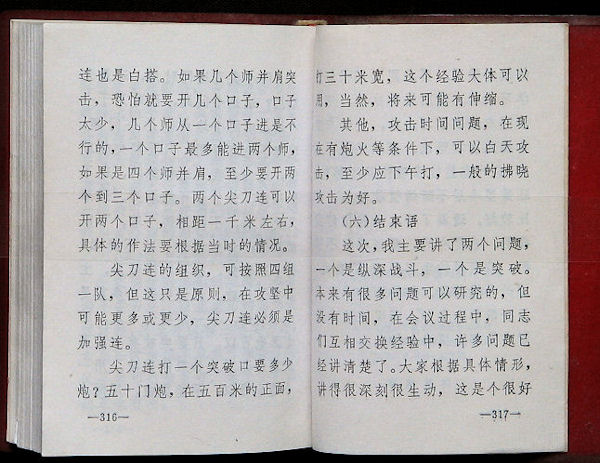 连也是白搭。如果几个师并肩突
击，恐怕就要开几个口子，口子
太少，几个师从一个口子进是不
行的，一个口子最多能进两个师，
如果是四个师并肩，至少要开两
个到三个口子。两个尖刀连可以
开两个口子，相距一千米左右，
具体的作法要根据当时的情况。
尖刀连的组织，可按照四组
一队，但这只是原则，在攻坚中
可能更多或更少，尖刀连必须是
加强连。
尖刀连打一个突破口要多少
炮？五十门炮，在五百米的正面，
—316—
打三十米宽，这个经验大体可以
用，当然，将来可能有伸缩。
其他，攻击时间问题，在现
在有炮火等条件下，可以白天攻
击，至少应下午打，一般的拂晓
攻击为好。
(六)结束语
这次，我主要讲了两个问题，
一个是纵深战斗，一个是突破。
本来有很多问题可以研究的，但
没有时间，在会议过程中，同志
们互相交换经验中，许多问题已
经讲清楚了。大家根据具体情形，
讲得很深刻很生动，这是个很好
—317—